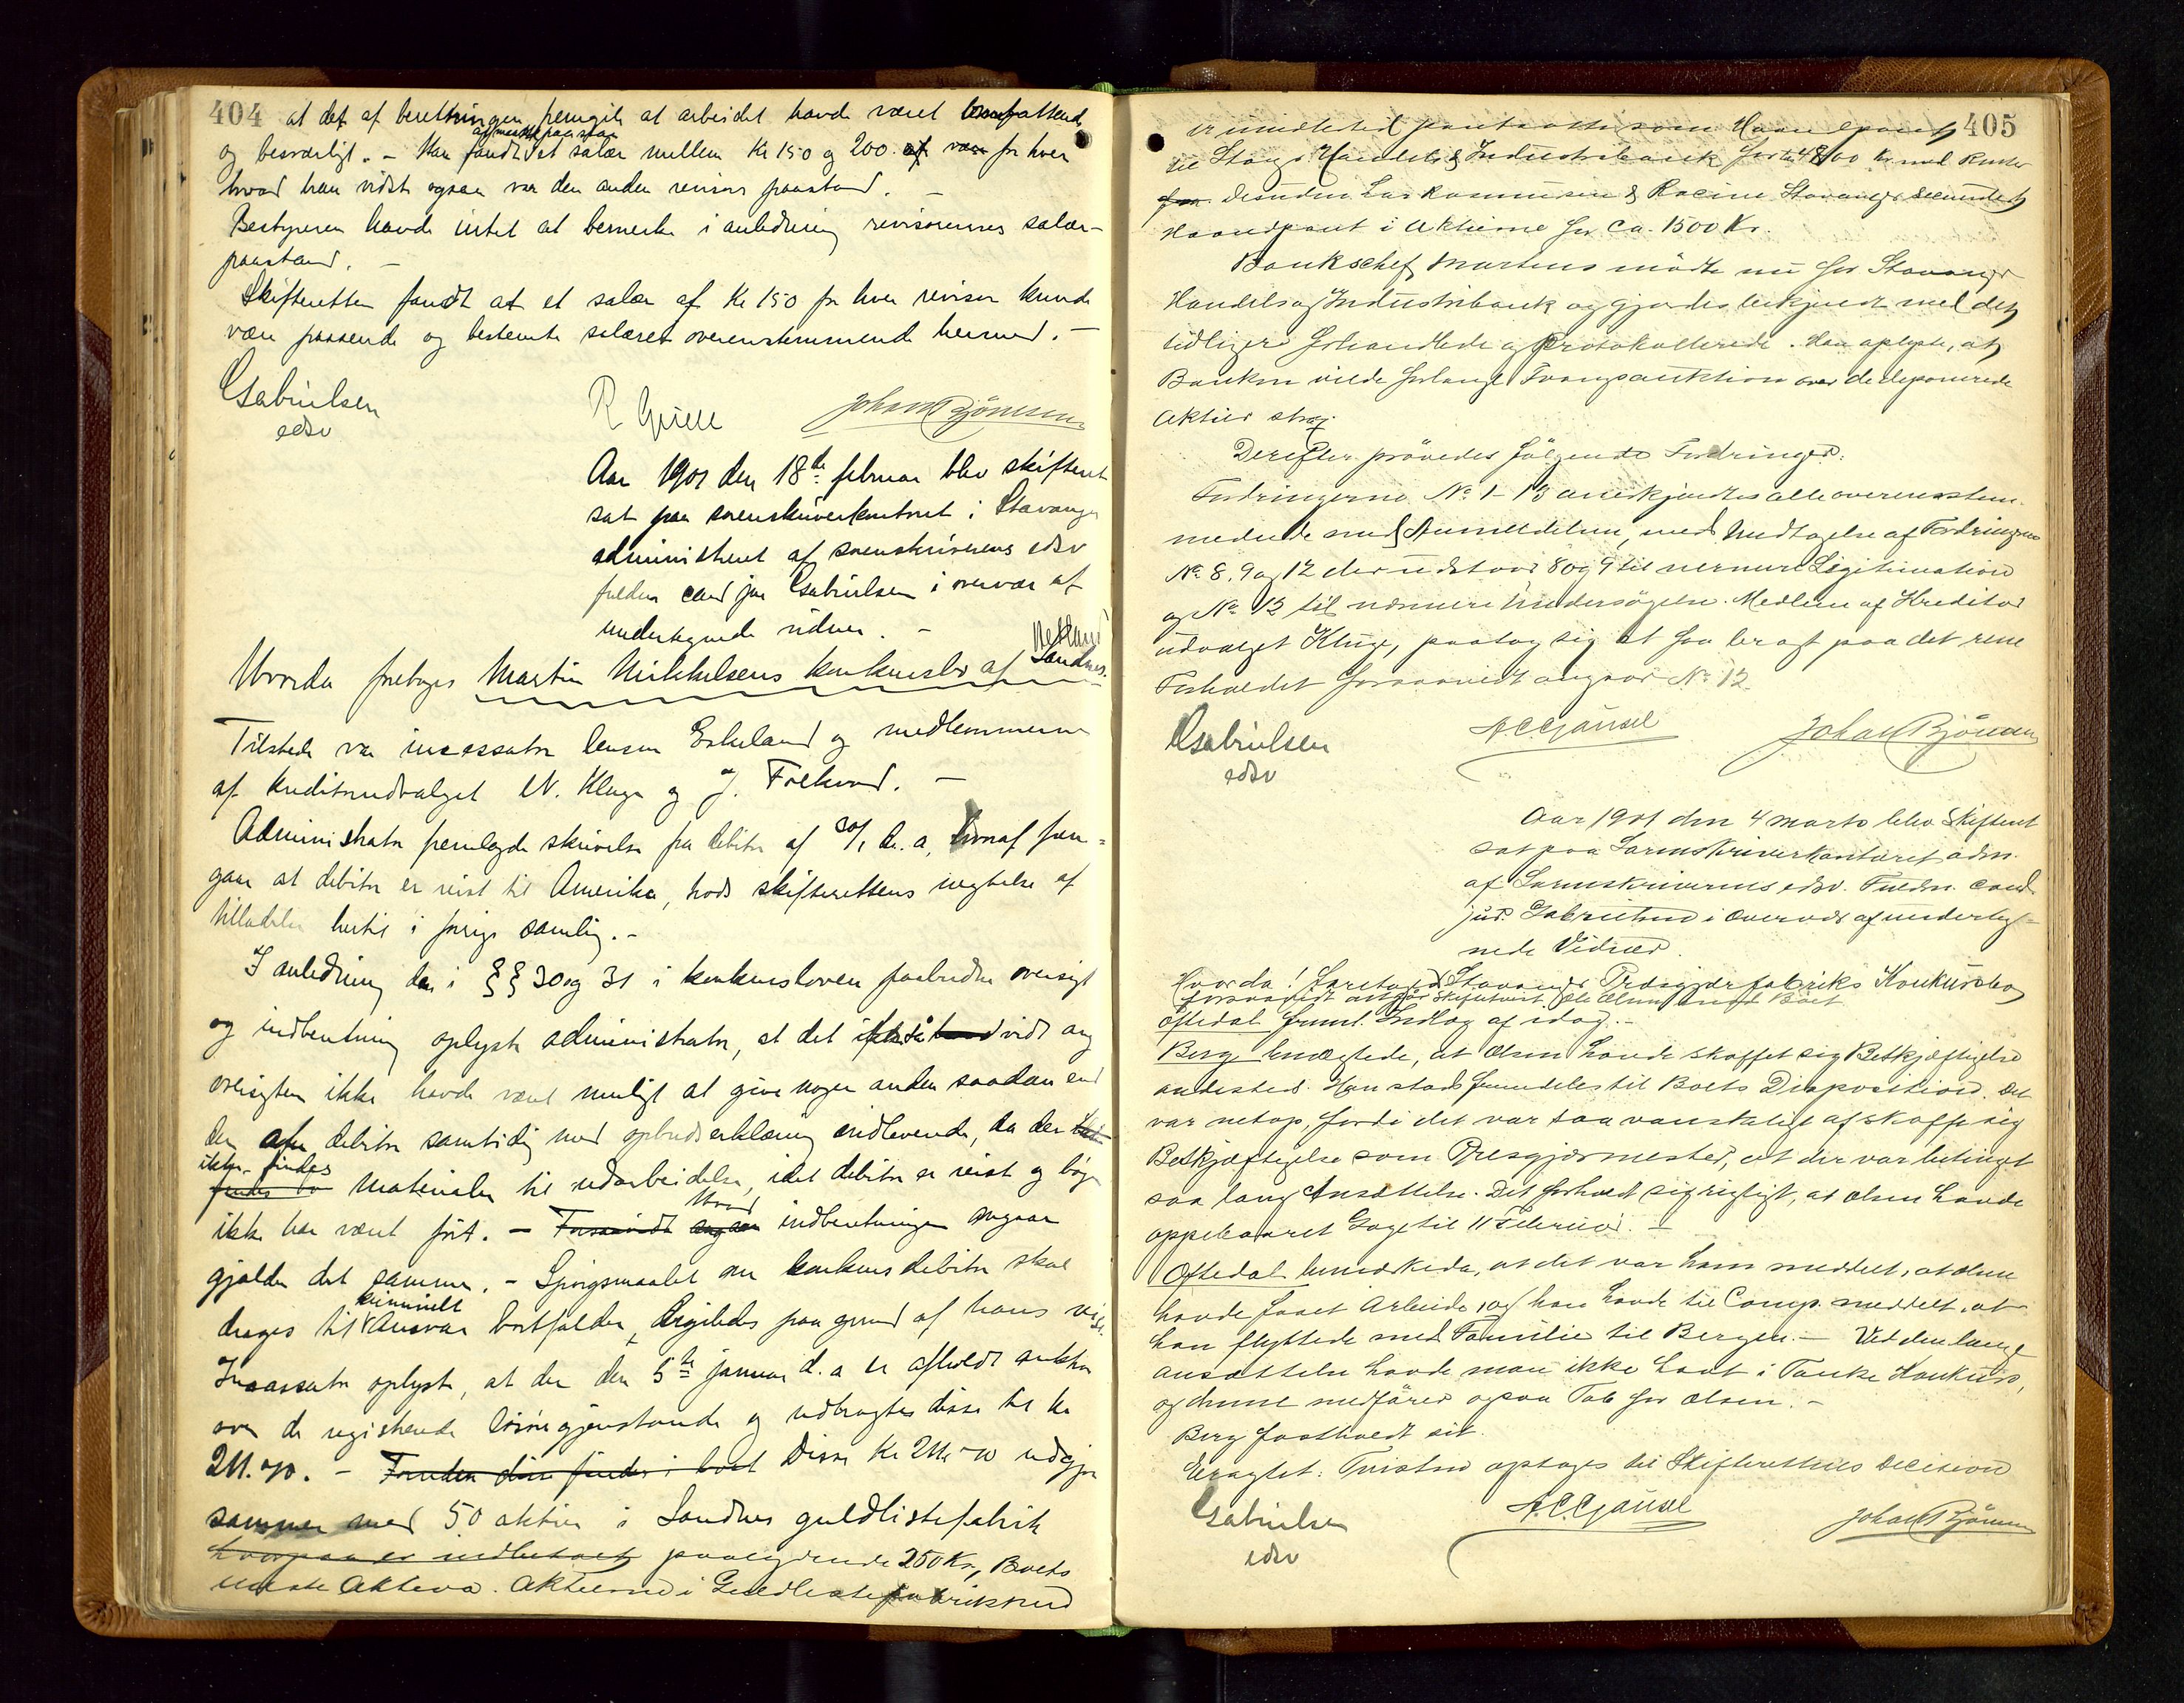 404
at det af beretningen fremgik at arbeidet havde været omfattende
og besværligt. – Han fandt at et salær mellem Kr 150 og 200 for hver
hvad han vidste ogsaa var den anden revisors paastand. –
Bestyreren havde intet at bemerke i anledning revisorernes salær-
paastand. –
Skifteretten fandt at et salær af Kr 150 for hver revisor kunde
være passende og bestemte salæret overensstemmende hermed. –
Gabrielsen
edsv
Johan Bjönsen
Aar 1901 den 18de februar blev skifteret
sat paa sorenskriverkontoret i Stavanger
administreret af sorenskriverens edsv
fuldm cand jur Gabrielsen i overvær af
undertegnede vidner. –
Hvorda foretoges Martin Mikkelsens konkursbo af Sandnes.
Tilstede var incassator lensm Eskeland og medlemmerne
af kreditorudvalget N. Kluge og J. Folkvord. –
Administrator fremlagde skrivelse fra debitor af 30/1 d. a, hvoraf frem-
gaar at debitor er reist til Amerika, trods skifterettens negtelse af
tilladelse hertil i forrige samling. –
I anledning den i §§ 30 og 31 i konkursloven paabudne oversigt
og indberetning oplyste administrator, at det vidt ang
oversigten ikke havde været muligt at give nogen anden saadan end
den debitor samtidig med opbudserklæring indleverede, da der
ikke findes materialer til udarbeidelse, idet debitor er reist og bøger
ikke har været ført. – Hvad indberetningen angaar
gjælder det samme. – Spørgsmaalet om konkursdebitor skal
drages til kriminelt Ansvar bortfalder paa grund af hans
Incassator oplyste, at der den 5te januar d. a er afholdt auktion
over de registrerede løsøregjenstande og udbragtes disse til kr
211.70. – Disse Kr 211.70 udgjør
sammen med 50 aktier i Sandnes guldlistefabrik
paalydende 250 Kr, Boets
eneste Aktiva. Aktierne i Guldlistefabrikken
405
er imidlertid pantsatte som Haandpant
til Stavgr Handels & Industribank for Kr 4800 Kr med Renter
desuden har Rasmussen & Racine Stavanger sekundært
Haandpant i Aktierne for ca. 1500 Kr.
Bankschef Martens mödte nu for Stavanger
Handels og Industribank og gjordes bekjendt med det
tidligere forhandlede og Protokollerede. Han oplyste, at
Banken vilde forlange Tvangsauktion over de deponerede
Aktier strax.
Derefter prövedes fölgende Fordringer:
Fordringerne No 1–13 anerkjendtes alle overensstem-
mende med Anmeldelsen, med Undtagelse af Fordringerne
No 8, 9 og 12 der udstaar 8 og 9 til nærmere Legitimation
og No 12 til nærmere Undersögelse. Medlem af Kreditor
udvalget Kluge, paatog sig at faa bragt paa det rene
Forholdet forsaavidt angaar No 12.
Gabrielsen
edsv
A C Gjausel
Johan Bjönsen
Aar 1901 den 4 marts blev Skifteret
sat paa Sorenskriverkontoret adm.
af Sorenskriverens edsv. Fuldm. cand.
jur. Gabrielsen i Overvær af underteg-
nede Vidner.
Hvorda! Foretoges Stavanger Præsgjærfabriks Konkursbo
forsaavidt angaar Skiftetvist Ole Olsen mod Boet
Oftedal freml. Indlæg af idag. –
Berg benægtede, at Olsen havde skaffet sig Beskjæftigelse
andetsted. Han staar fremdeles til Boets Disposition. Det
var netop, fordi det var saa vanskeligt at skaffe sig
Beskjæftigelse som Presgjærmester, at der var betinget
saa lang Ansættelse. Det forholdt sig rigtigt, at Olsen havde
oppebaaret Gage til 11 Februar. –
Oftedal bemærkede, at det var ham meddelt, at Olsen
havde faaet Arbeide, og han havde til Comp. meddelt, at
han flyttede med Familie til Bergen. – Ved den lange
Ansættelse havde man ikke havt i Tanke Konkurs,
og denne medförer ogsaa Tab for Olsen. –
Berg fastholdt sit.
Eragtet: Tvisten optages til Skifterettens Decision
Gabrielsen
edsv
A.C. Gjausel
Johan Bjönsen